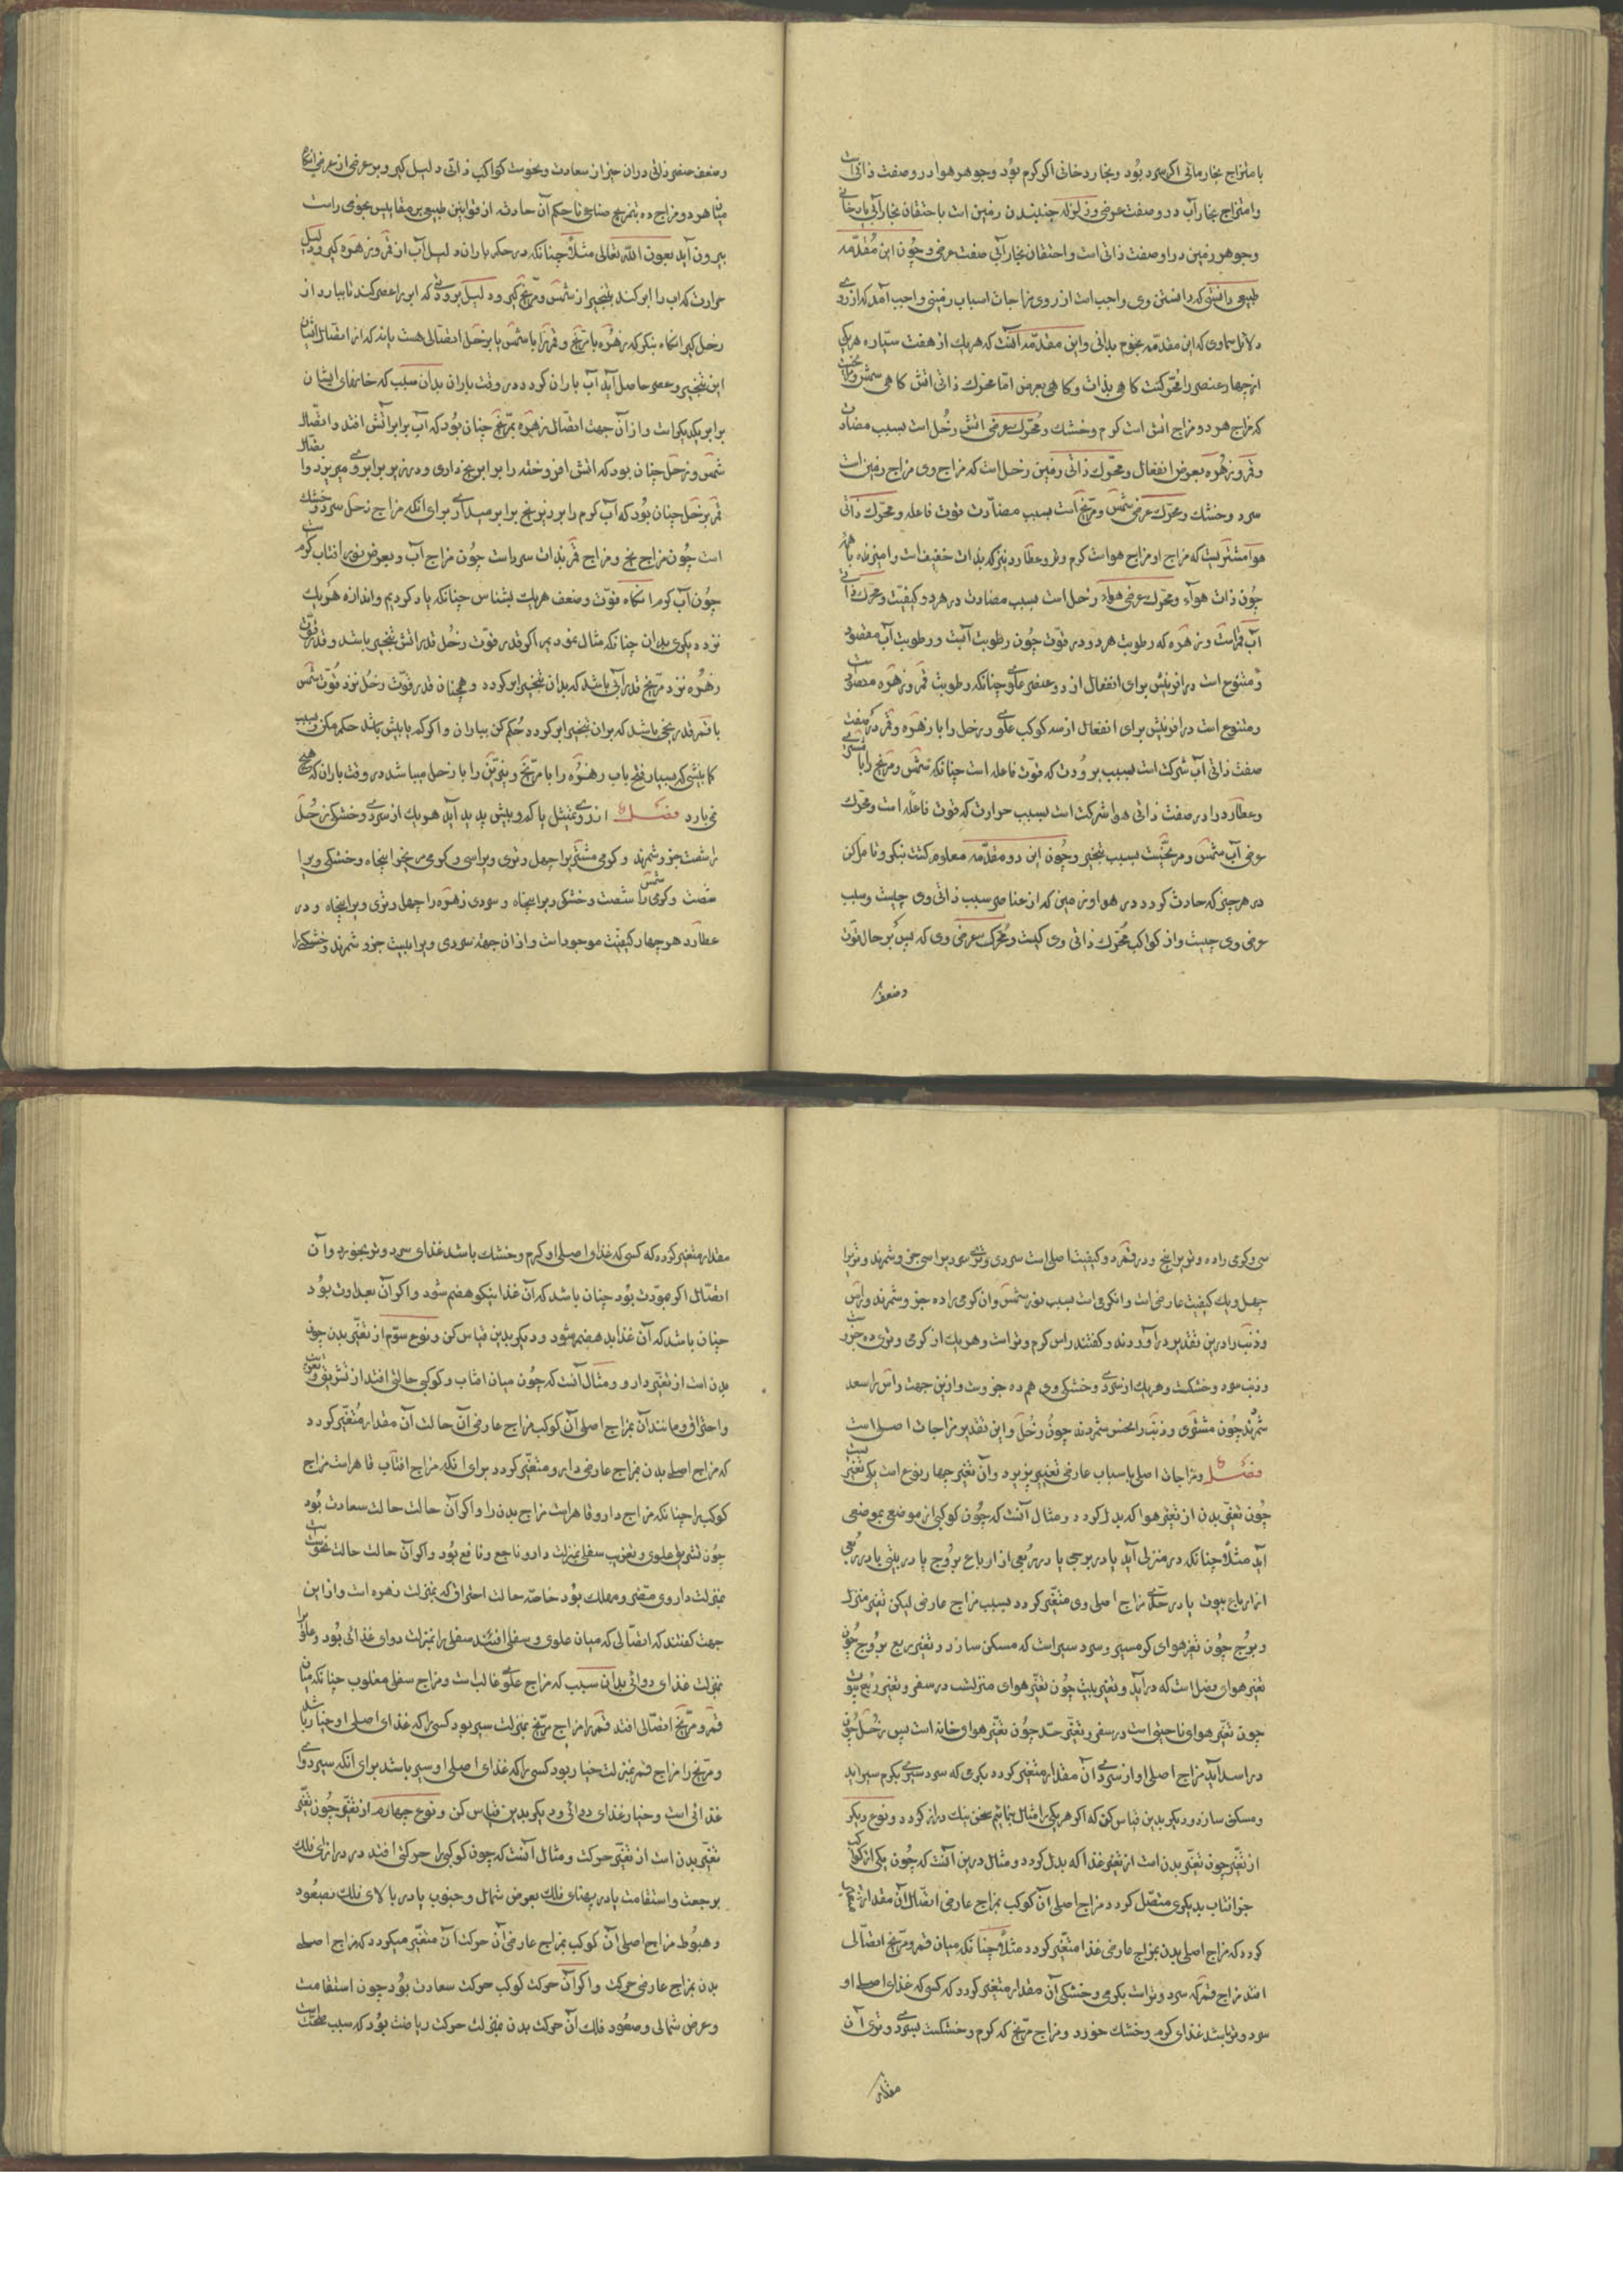 با متزاج بخار مائی اکر سرد بود و بخار دخانی اکر کرم بود و جوهر هوا در و صفت ذاتی است
وامتزاج بخار آب در و صفت عرضی و زلزله جنبیدن زمین است باحتقان بخار آبی یا دخانی
وجوهر زمین در او صفت ذاتی است واحتقان بخار آبی صفت عرضی و چون این مقدّمه
طبیعی دانستی که دانستن وی واجب است از روی مزاجات اسباب زمینی واجب آمد که از روی
دلائل سماوی که این مقدمه نجوم بدانی واین مقدّمه آنست که هریک از هفت ستیاره هریکی
از چهار عنصر را محرّکست کاهی بذات و کاهی بعرض امّا محرّک ذاتی اتش کاهی شمس و مریخست
که مزاج هر دو مزاج اتش است کرم وخشک و محرّک عرضی اتش زحل است بسبب مضادت
وقمر و زهره بعوض انفعال و محرّک ذاتی زمین زحل است که مزاج وی مزاج زمین است
سرد وخشک ومحرّک عرضی شمس ومریخ است بسبب مضادّت قوت فاعله ومحرّک ذاتی
هوا مشتریست که مزاج او مزاج هواست کرم وتر وعطارد نیز که بذات خفیف است وامیزنده با همه
چون ذات هوا ومحرّک عرضی هوا زحل است بسبب مضادت در هر دو کیفیت ومحرّک ذاتی
آب قمر است و زهره که رطوبت هر دو در قوّت چون رطوبت آبست و رطوبت آب مقصود
و متنوع است در افرینش برای انفعال از دو عنصر علوی چنانکه رطوبت قمر و زهره مقصود است
ومتنوع است در افرینش برای انفعال از سه کوکب علوی و زحل را با زهره وقمر در صفت
صفت ذاتی آب شرکت است بسبب برودت که قوّت فاعله است چنانکه شمس ومریخ را با مشتری
وعطارد را در صفت ذاتی هوا شرکت است بسبب حرارت که قوت فاعله است ومحرّک
عرضی آب شمس و مریخست بسبب تبخیر وچون این دو مقدّمه معلوم کشت بنکر وتامل کن
در هر چیز که حادث کردد در هوا و زمین که از عناصر سبب ذاتی وی چیست وسبب
عرضی وی چیست واز کواکب محرّک ذاتی وی کیست ومحرّک عرضی وی که پس بر حال قوت
وضعف
وضعف عنصر ذاتی دران چیز از سعادت ونحوست کواکب ذاتی دلیل کیر و بر عرضی از عرضی انکاه
میان هر دو مزاج ده بتمزیج صناعی تا حکم آن حادثه از قوانین طبیعی بر مقاییس نجومی راست
بیرون آید بعون اللّه تعالی مثلاً چنانکه در حکم باران دلیل آب از قمر و زهره کیر ودلیل
حرارت که اب را ابر کند بتبخیر از شمس ومریخ کیر ودلیل برودتی که ابر را عصر کند تا ببارد از
زحل کیر انکاه بنکر که زهره با مریخ وقمر را با شمس یا بزحل اتصالی هست یا نه که از اتصال ایشان
این تبخیر وعصر حاصل آید آب باران کردد در وقت باران بدان سبب که خانهای ایشان
برابر یکدیکر است و از آن جهت اتصال زهره بمریخ چنان بود که آب برابر آتش افتد واتصال
شمس و زحل چنان بود که اتش افروخته را برابر یخ داری ودر زیر برابر وی میریزد واتصال
قمر بزحل چنان بود که آب کرم را بر زیر یخ برابر میداری برای انکه مزاج زحل سرد وخشک
است چون مزاج یخ ومزاج قمر بذات سرد است چون مزاج آب وبعرض نور افتاب کرم است
چون آب کرم انکاه قوّت وضعف هریک بشناس چنانکه یاد کردیم واندازه هریک
نزد دیکری بدان چنانکه مثال نمودیم اکر قدر قوّت زحل قدر اتش تبخیر باشد وقدر قوّت
زهره نزد مریخ قدر آبی باشد که بدان تبخیر ابر کردد وهمچنان قدر قوّت زحل نزد قوّت شمس
با قمر قدر یخی باشد که بران تبخیر ابر کردد حکم کن بباران و اکر که یا بیش باشد حکم مکن وبسبب
کابیشی که بسیار فتح باب زهره را با مریخ ونیّرین را با زحل میباشد در وقت باران که هیچ
نمی بارد فصل از روی تمثیل یا که وبیش پدید آید هریک از سردی وخشکی زحل
را شصت جزو شمرند وکرمی مشتری را چهل وتری ویرا سی وکرمی مریخ را پنجاه وخشکی ویرا
شصت وکرمی شمس را شصت وخشکی ویرا پنجاه وسردی زهره را چهل وتری ویرا پنجاه ودر
عطارد هر چهار کیفیت موجود است واز ان جهته سردی ویرا بیست جزو شمرند وخشکی را
سی وکرمی را ده وتری را پنج ودر قمر دو کیفیت اصلی است سردی وتری سردیرا سی جزو شمرند وتریرا
چهل ویک کیفیت عارضی است وانکرمی است بسبب نور شمس وان کرمی را ده جزو شمرند وراس
وذنب را درین تقدیر درآوردند وکفتند راس کرم وتر است وهریک از کرمی وتری ده جزو است
وذنب سرد وخشکست وهریک از سردی وخشکی وی هم ده جزوست وازین جهت راس را سعد
شمرند چون مشتری وذنب را نحس شمردند چون زحل واین تقدیر مزاجات اصل است
فصل ومزاجات اصلی باسباب عارضی تغییر پذیرد وآن تغیّر چهار نوع است یکی تغیّریست
چون تغیّر بدن از تغیّر هوا که بدل کردد ومثال آنست که چون کوکبی از موضع بموضعی
آید مثلاً چنانکه در منزلی آید یا در برجی یا در ربعی از ارباع بروج یا در بیتی یا در ربعی
از ارباع بیوت یا در حدّی مزاج اصلی وی متغیّر کردد بسبب مزاج عارضی لیکن تغیّر منزل
وبرج چون تغیّر هوای کرمسیر وسردسیر است که مسکن سازد وتغیّر ربع بروج چون
تغیّر هوای فصل است که درآید وتغیّر بیت چون تغیّر هوای منزلست در سفر وتغیّر ربع بیوت
چون تغیّر هوای ناحیتی است در سفر وتغیّر حدّ چون تغیّر هوای خانه است پس زحل چون
در اسد آید مزاج اصلی او از سردی آن مقدار متغیّر کردد بکرمی که سردسیری بکرم سیر اید
ومسکن سازد ودیکر بدین قیاس کن که اکر هریکی را مثال بنمایم سخن نیک دراز کردد ونوع دیکر
از تغیّر چون تغیّر بدن است از تغیّر غذا که بدل کردد ومثال درین آنست که چون یکی از کواکب
جز افتاب بدیکری متصّل کردد مزاج اصلی آن کوکب بمزاج عارضی اتصال آن مقدار متغیر
کردد که مزاج اصلی بدن بمزاج عارضی غذا متغیّر کردد مثلاً چنانکه میان قمر ومریخ اتصّالی
افتد مزاج قمر که سرد وتر است بکرمی وخشکی آن مقدار متغیّر کردد که کسی که غذای اصلی او
سرد وتر باشد غذای کرم وخشک خورد ومزاج مریخ که کرم وخشکست بسردی وتری آن
مقدار
مقدار متغیر کردد که کسی که غذای اصلی او کرم وخشک باشد غذای سرد وتر بخورد وآن
اتصّال اکر بمودّت بود چنان باشد که آن غذا نیکو هضم شود واکر آن بعداوت بود
چنان باشد که آن غذا بد هضم شود ودیکر بدین قیاس کن ونوع سوّم از تغیّر بدن چون
بدن است از تغیّر دارو ومثال آنست که چون میان افتاب وکوکبی حالتی افتد از تشریق وتغریب
واحتراق ومانند آن مزاج اصلی آن کوکب بمزاج عارضی آن حالت آن مقدار متغیّر کردد
که مزاج اصلی بدن بمزاج عارضی دارو متغیّر کردد برای انکه مزاج افتاب قاهر است مزاج
کوکب را چنانکه مزاج دارو قاهر است مزاج بدن را واکر آن حالت حالت سعادت بود
چون تشریق علوی وتغریب سفلی بمنزلت دارو ناجع ونافع بود واکر آن حالت حالت نحوست است
بمنزلت داروی مضر ومهلک بود خاصّه حالت احتراق که بمنزلت زهره است واز این
جهت کفتند که اتصّالی که میان علوی وسفلی افتد سفلی را بمنزلت دوای غذائی بود وعلوی را
بمنزلت غذای دوائی بدان سبب که مزاج علوی غالب است ومزاج سفلی مغلوب چنانکه میان
قمر ومریخ اتصّالی افتد قمر را مزاج مریخ بمنزلت سیر بود کسی را که غذای اصلی او خیار باشد
ومریخ را مزاج قمر بمنزلت خیار بود کسی را که غذای اصلی او سیر باشد برای انکه سیر دوای
غذائی است وخیار غذای دوائی ودیکر بدین قیاس کن ونوع چهارم از تغیّر چون تغیّر
تغیّر بدن است از تغیّر حرکت ومثال آنست که چون کوکبی را حرکتی افتد در درازای فلک
برجعت واستقامت یا در پهنای فلک بعرض شمال وجنوب یا در بالای فلک بصعود
وهبوط مزاج اصلی آن کوکب بمزاج عارضی آن حرکت آن متغیّر میکردد که مزاج اصلی
بدن بمزاج عارضی حرکت واکر آن حرکت کوکب حرکت سعادت بود چون استقامت
وعرض شمالی وصعود فلک آن حرکت بدن بمنزلت حرکت ریاضت بود که سبب صحّت است